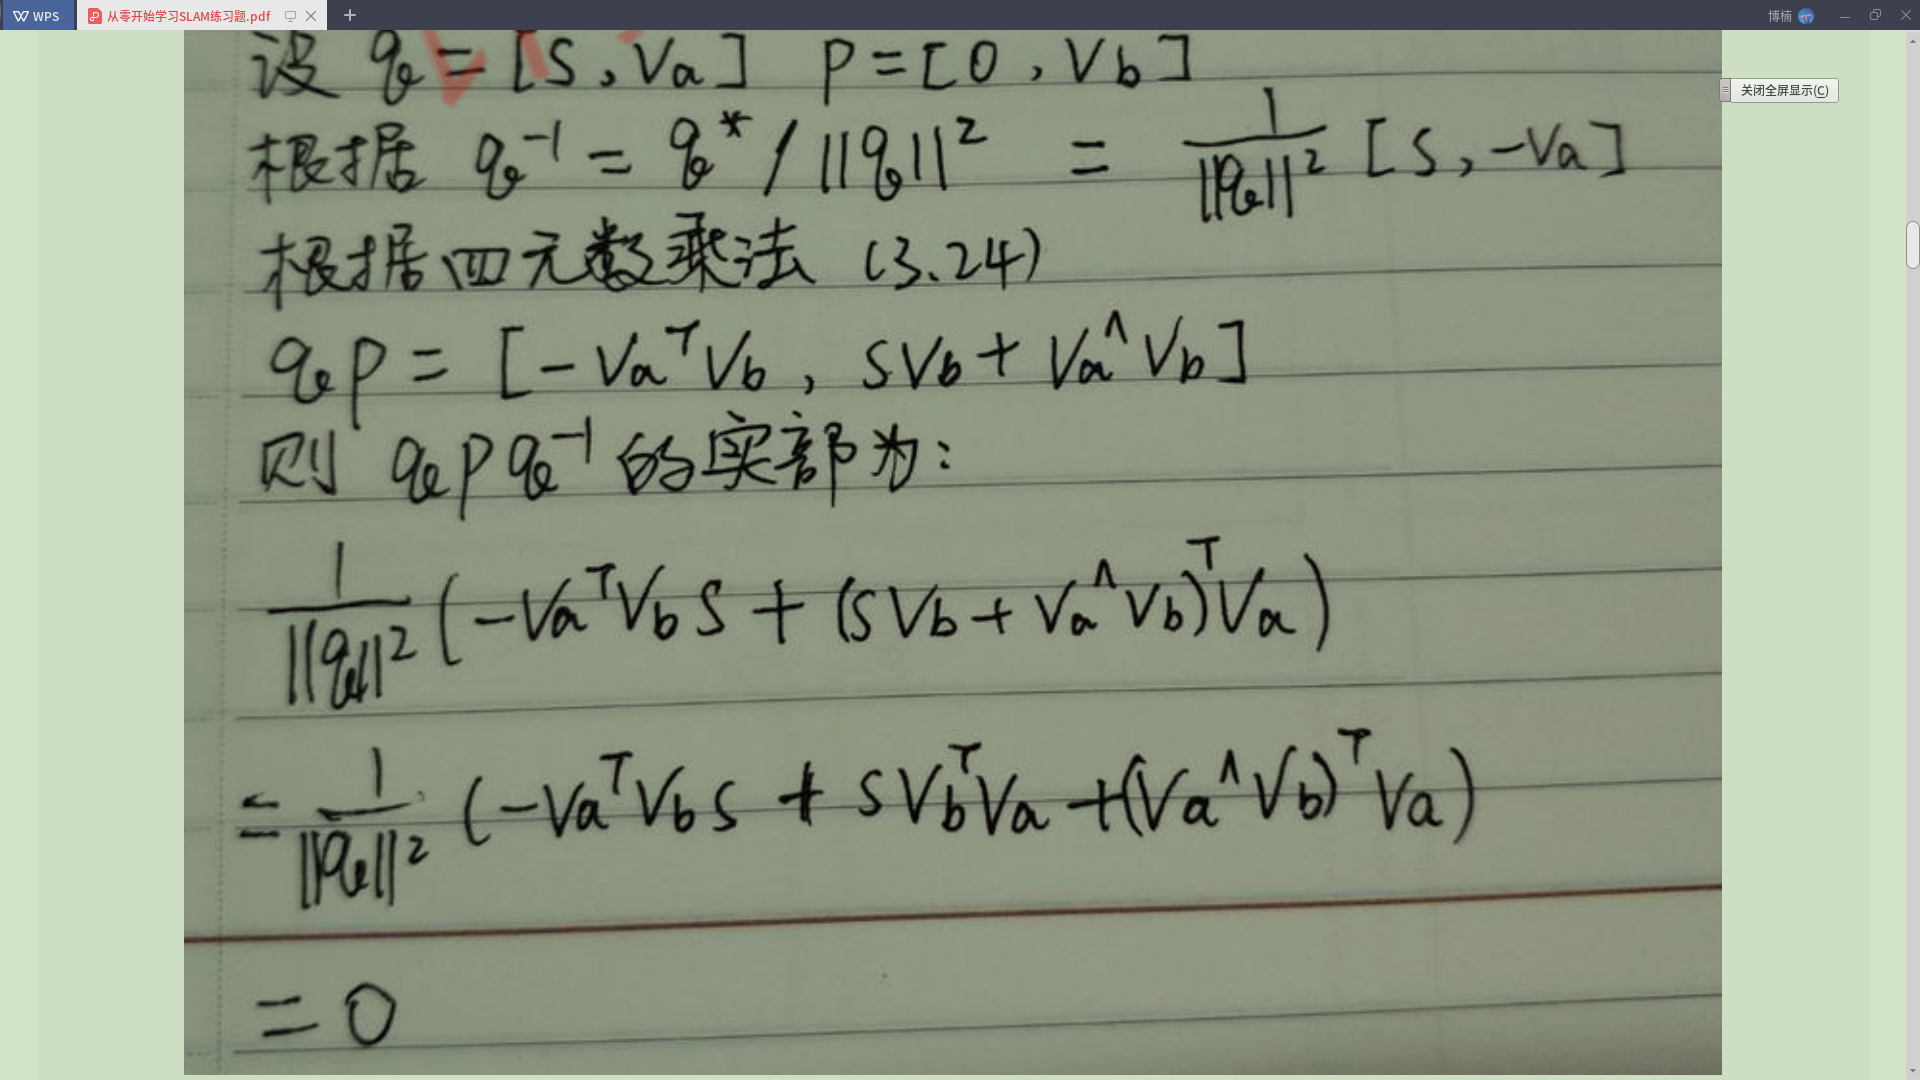 WPS 从零开始学习SLAM练习题.pdf 博楠
关闭全屏显示(C)
设 q = [S , Va] P = [0 , Vb]
根据 q⁻¹ = q* / ||q||² = 1/||q||² [S, -Va]
根据四元数乘法 (3.24)
qp = [-VaᵀVb , SVb + Va^Vb]
则 qpq⁻¹ 的实部为:
1/||q||² (-VaᵀVbS + (SVb + Va^Vb)ᵀVa)
= 1/||q||² (-VaᵀVbS + SVbᵀVa + (Va^Vb)ᵀVa)
= 0